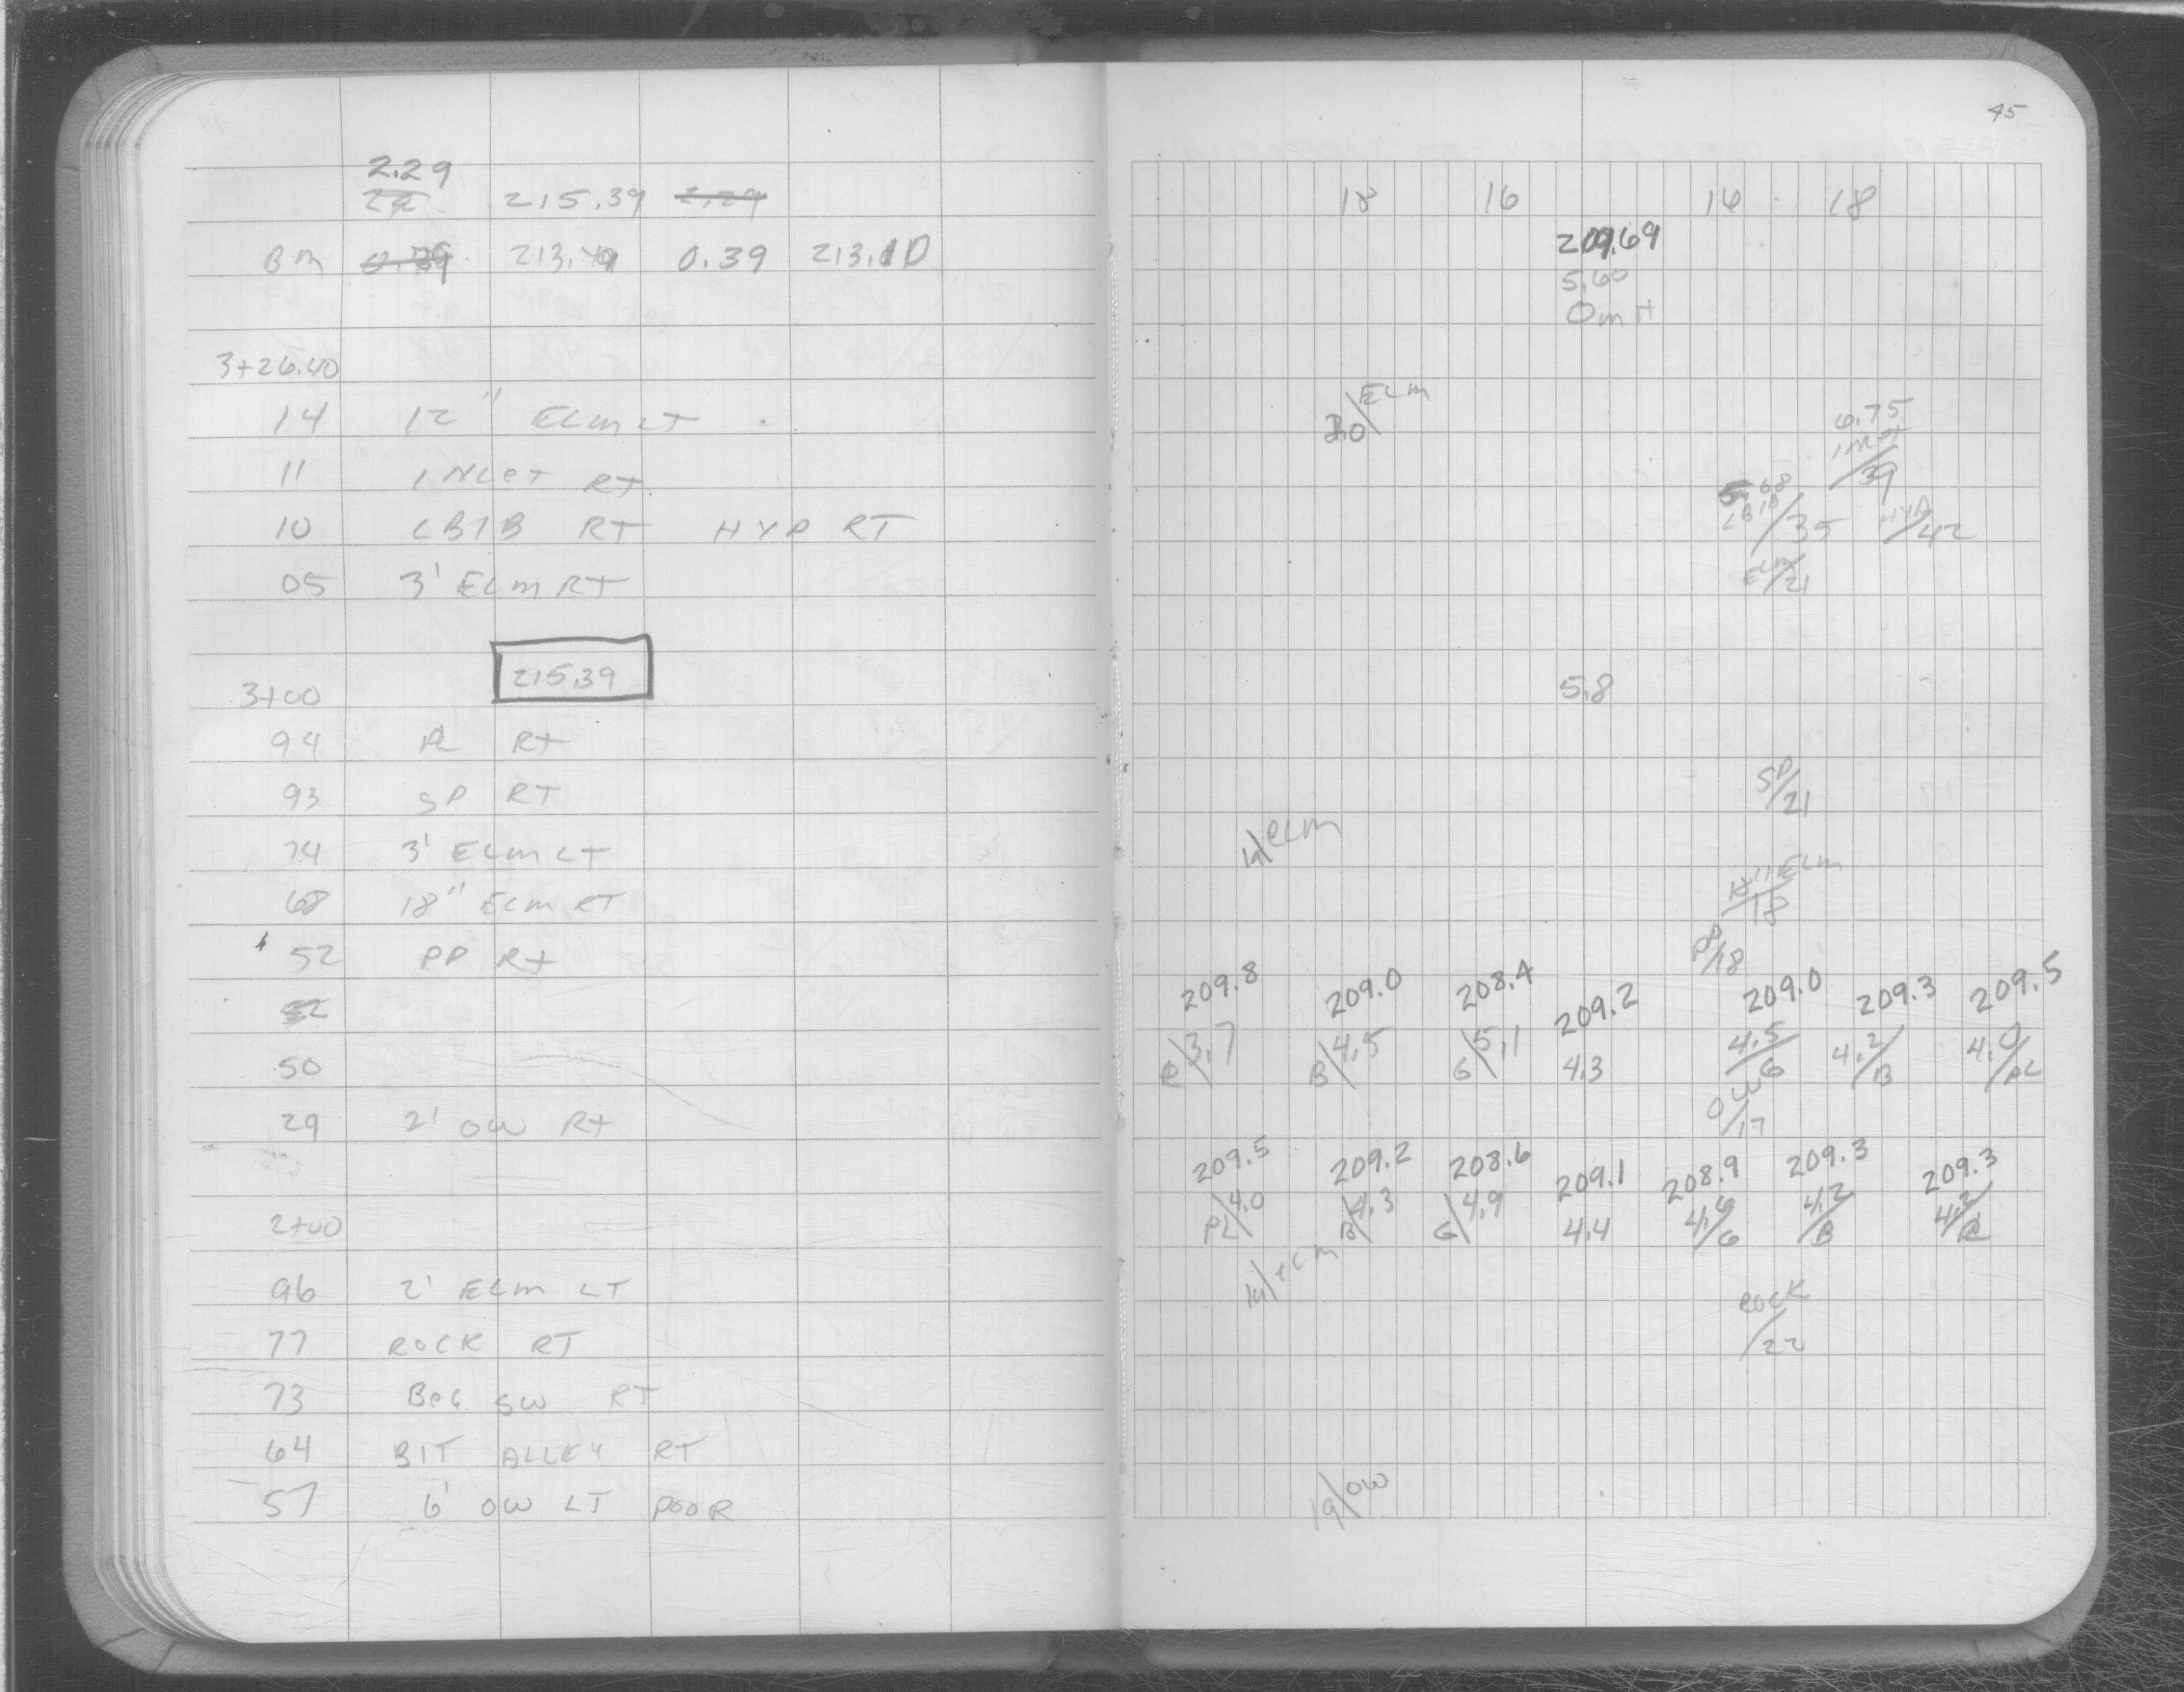 45
2.29
215.39 2.29
BM 213.49 0.39 213.10
3+26.40
14 12" ELM LT
11 INLET RT
10 CB1B RT HYD RT
05 3' ELM RT
215.39
3+00
94 PL RT
93 SP RT
74 3' ELM LT
68 18" ELM RT
52 PP RT
50
29 2' OW RT
2+00
96 2' ELM LT
77 ROCK RT
73 BEG SW RT
64 BIT ALLEY RT
57 6' OW LT POOR
18 16 16 18
209.69
5.60
OMH
20\ELM
6.75
INLET
/39
5.68
CB1B/35 HYD/42
ELM/21
5.8
SP/21
19\ELM
18" ELM
/18
PP/18
209.8 209.0 208.4 209.2 209.0 209.3 209.5
\3.7 B\4.5 G\5.1 4.3 4.5/G 4.2/B 4.0/PL
OW/17
209.5 209.2 208.6 209.1 208.9 209.3 209.3
PL\4.0 B\4.3 G\4.9 4.4 4.6/G 4.2/B 4.2/PL
19\ELM
ROCK
/22
19\OW